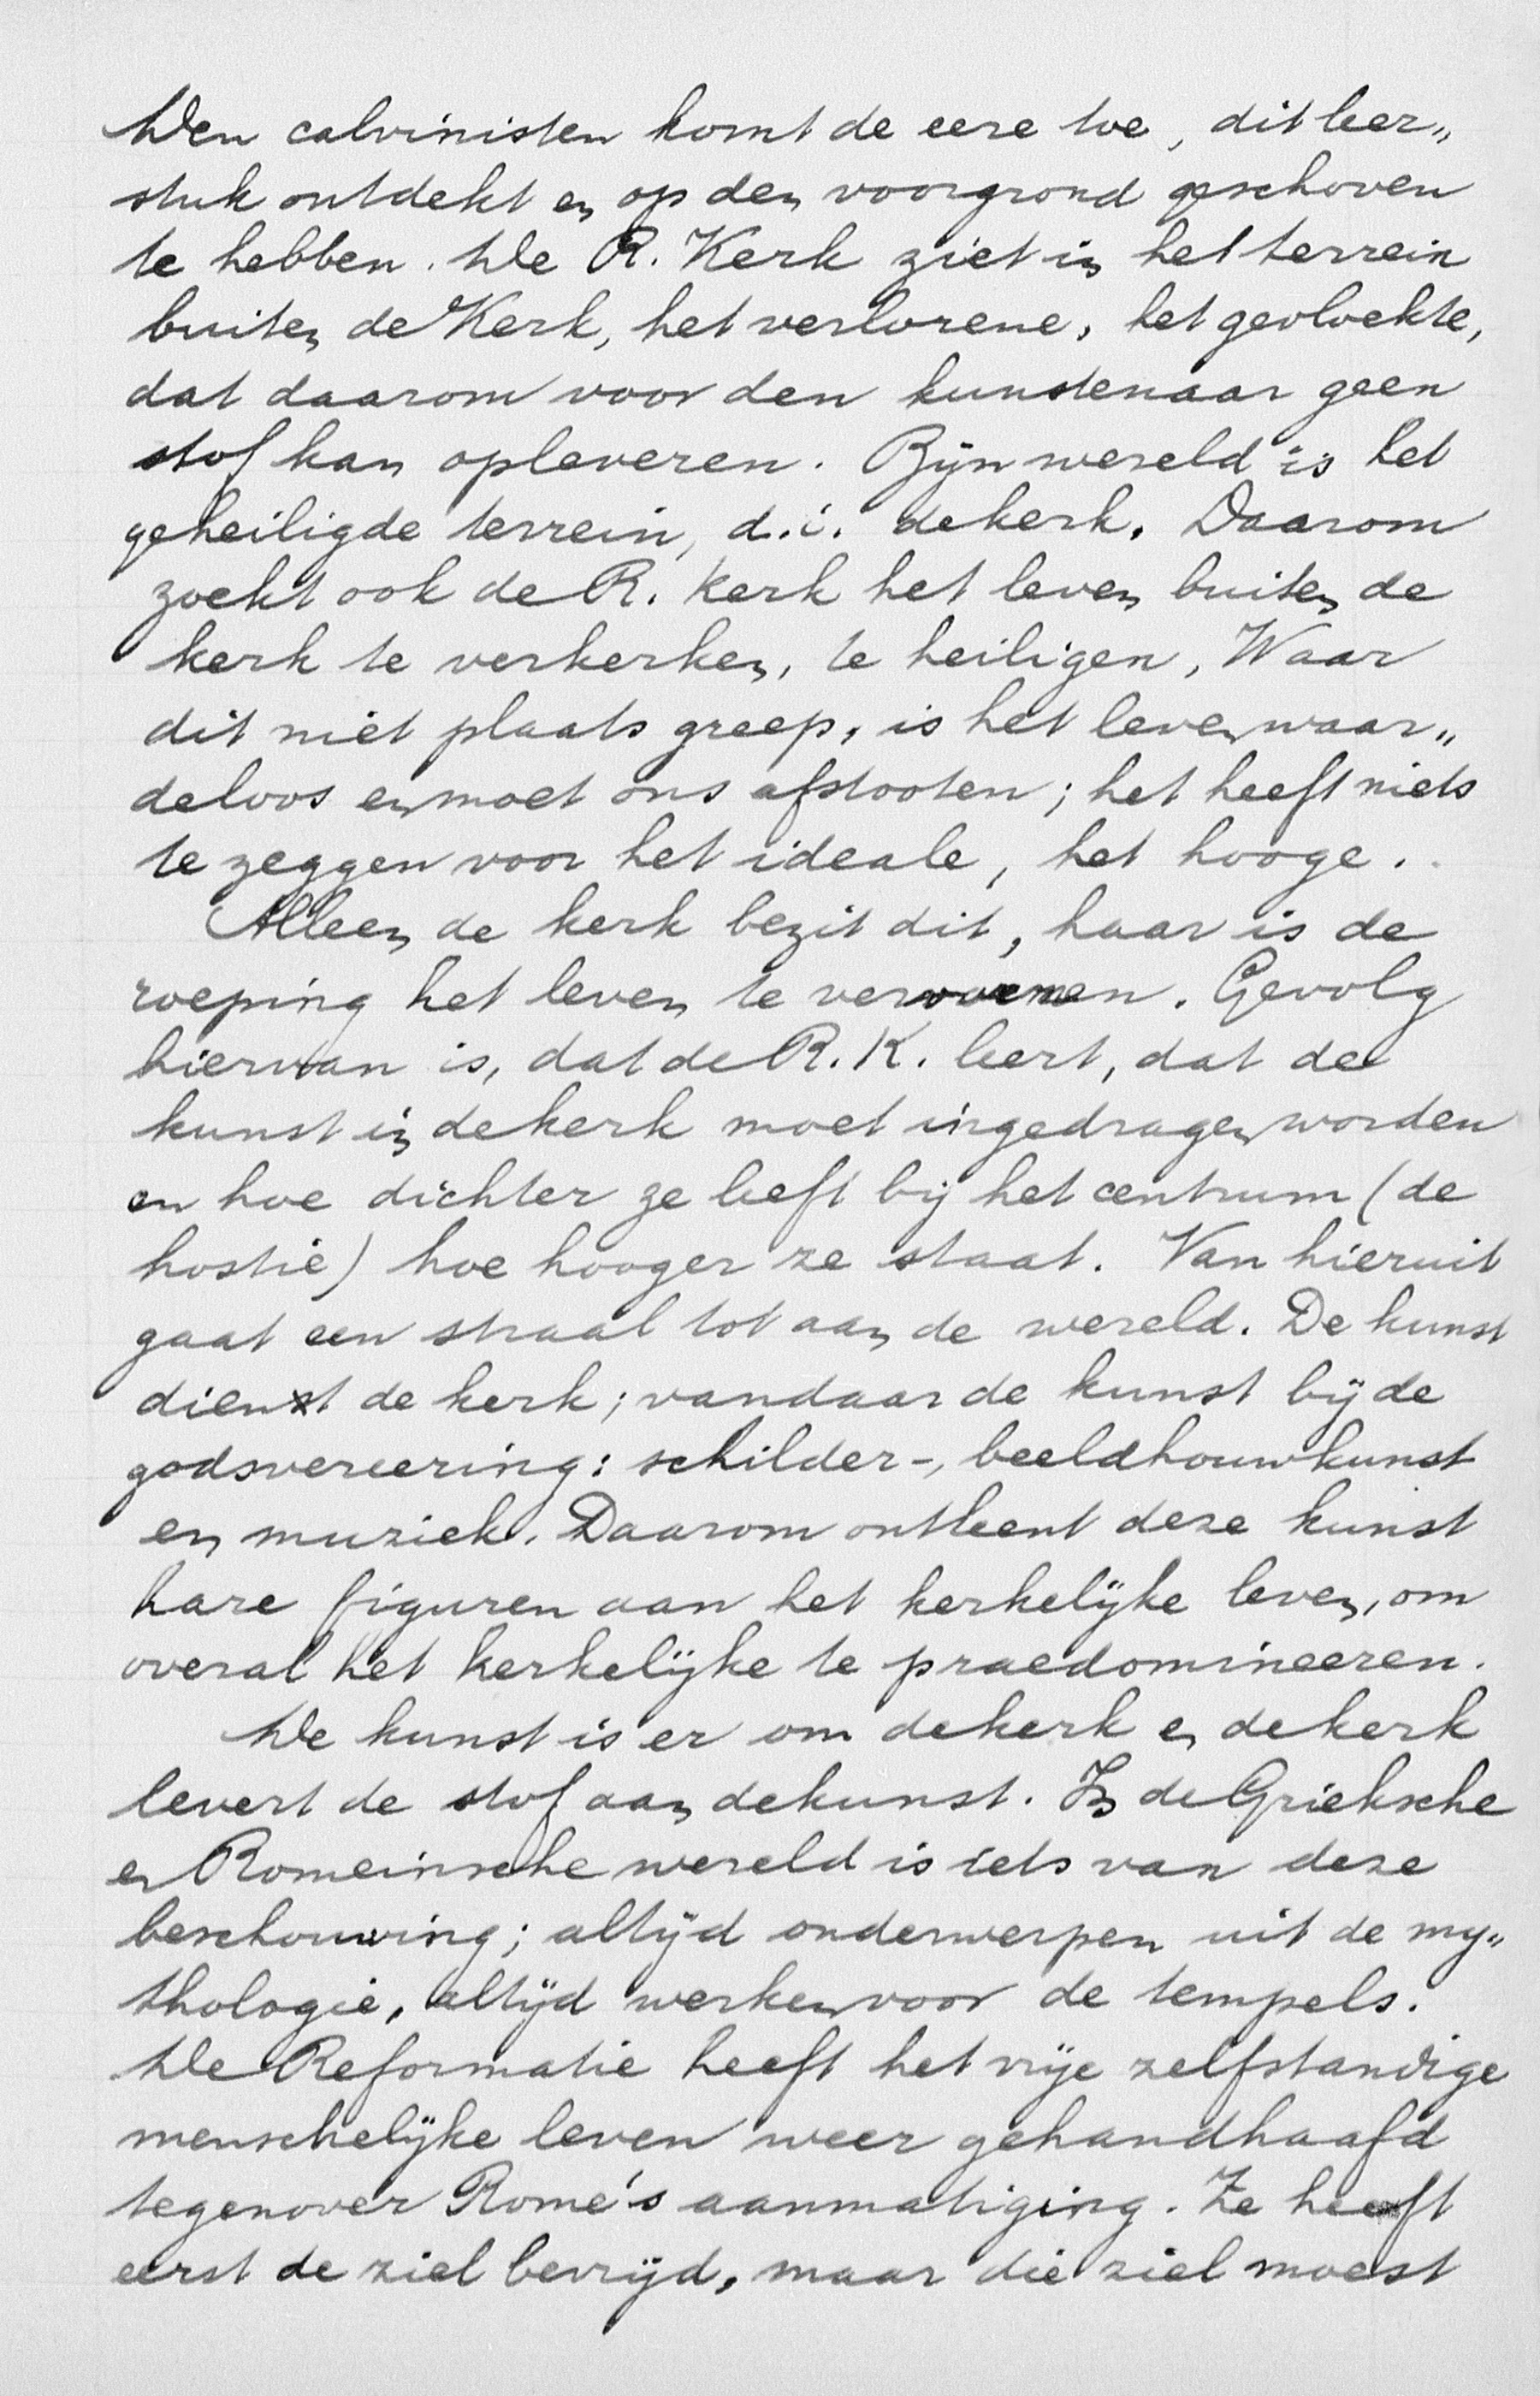 Den calvinisten komt de eere toe, dit leer„
stuk ontdekt en op den voorgrond geschoven
te hebben. De R. Kerk ziet in het terrein
buiten de Kerk, het verlorene, het gevloekte,
dat daarom voor den kunstenaar geen
stof kan opleveren. Zijn wereld is het
geheiligde terrein, d.i. de kerk. Daarom
zoekt ook de R. Kerk het leven buiten de
kerk te verkerken, te heiligen, Waar
dit niet plaats greep, is het leven waar„
deloos en moet ons afstooten; het heeft niets
te zeggen voor het ideale, het hooge.
Alleen de kerk bezit dit, haar is de
roeping het leven te vervormen. Gevolg
hiervan is, dat de R.K. leert, dat de
kunst in de kerk moet ingedragen worden
en hoe dichter ze leeft bij het centrum (de
hostie) hoe hooger ze staat. Van hieruit
gaat een straal tot aan de wereld. De kunst
dient de kerk; vandaar de kunst bij de
godsvereering: schilder-, beeldhouwkunst
en muziek. Daarom ontleent deze kunst
hare figuren aan het kerkelijke leven, om
overal het kerkelijke te praedomineeren.
De kunst is er om de kerk en de kerk
levert de stof aan de kunst. In de Grieksche
en Romeinsche wereld is iets van deze
beschouwing; altijd onderwerpen uit de my„
thologie, altijd werken voor de tempels.
De Reformatie heeft het vrije zelfstandige
menschelijke leven weer gehandhaafd
tegenover Rome's aanmatiging. Ze heeft
eerst de ziel bevrijd, maar die ziel moest